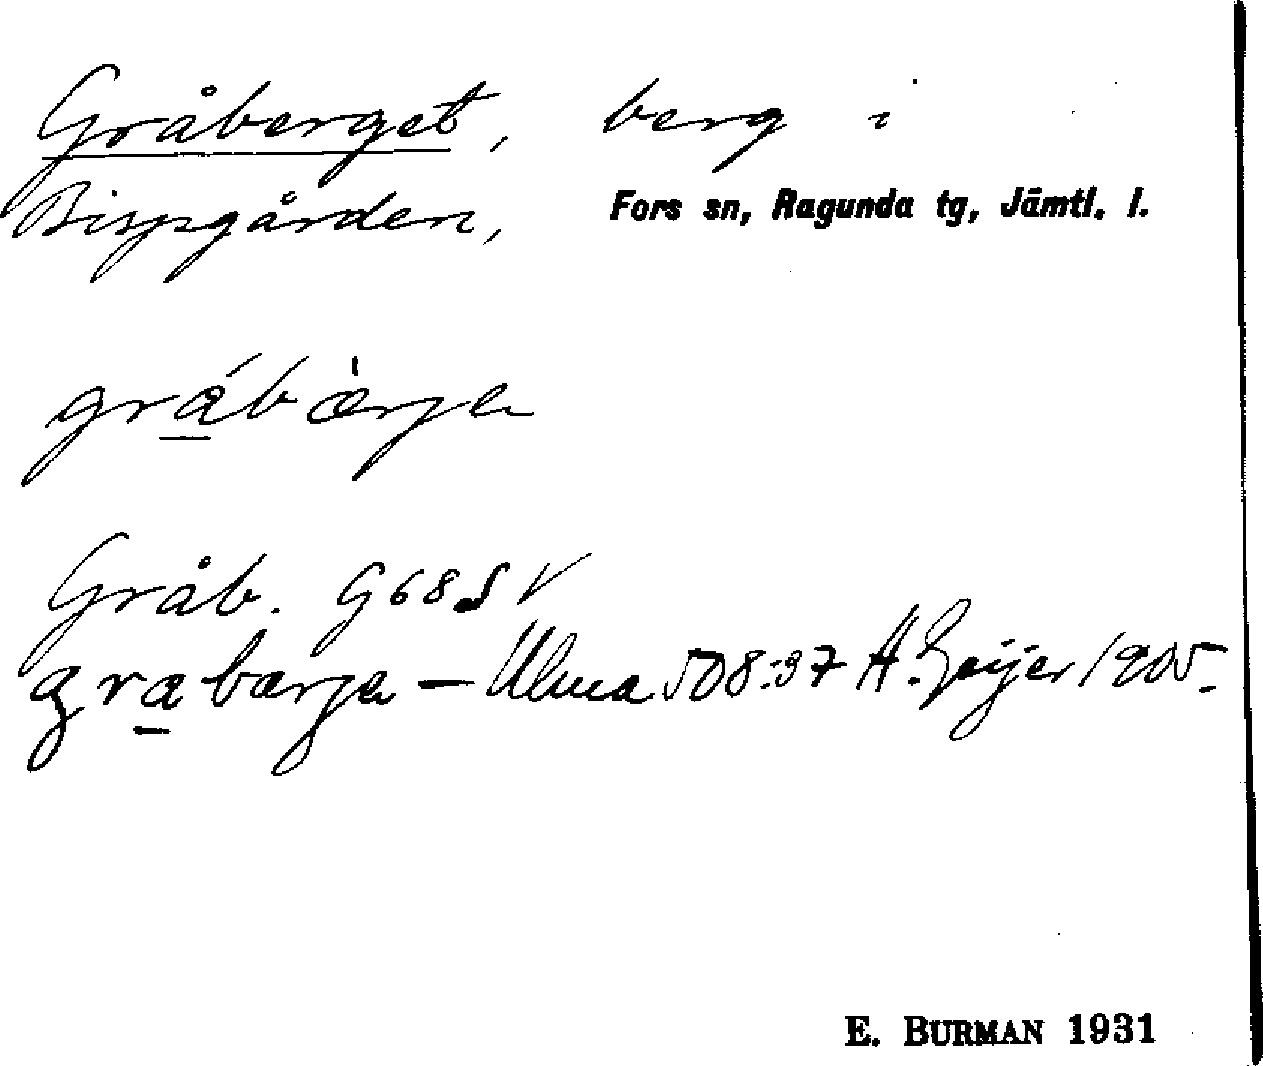 Gråberget, berg i
Bispgården, Fors sn, Ragunda tg, Jämtl. l.
grábæ̀rja
Gråb. G68SV
grabærja – Ulma 508:37 H. Geijer 1905.
E. BURMAN 1931